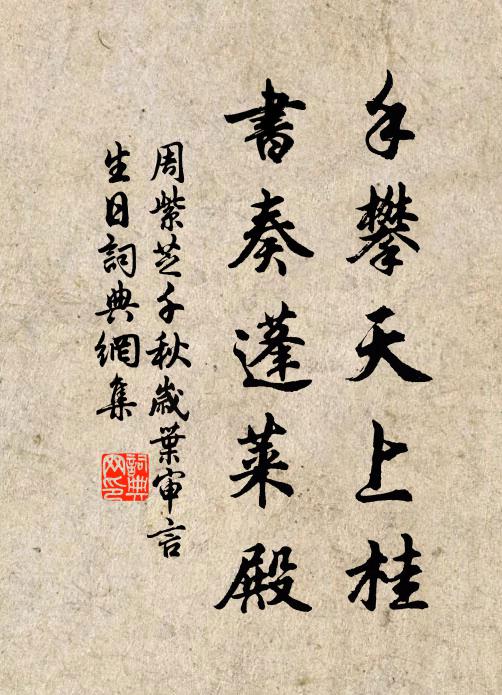 手攀天上桂
書奏蓬萊殿
周紫芝千秋歲葉审言
生日詞典網集
詞典
网印